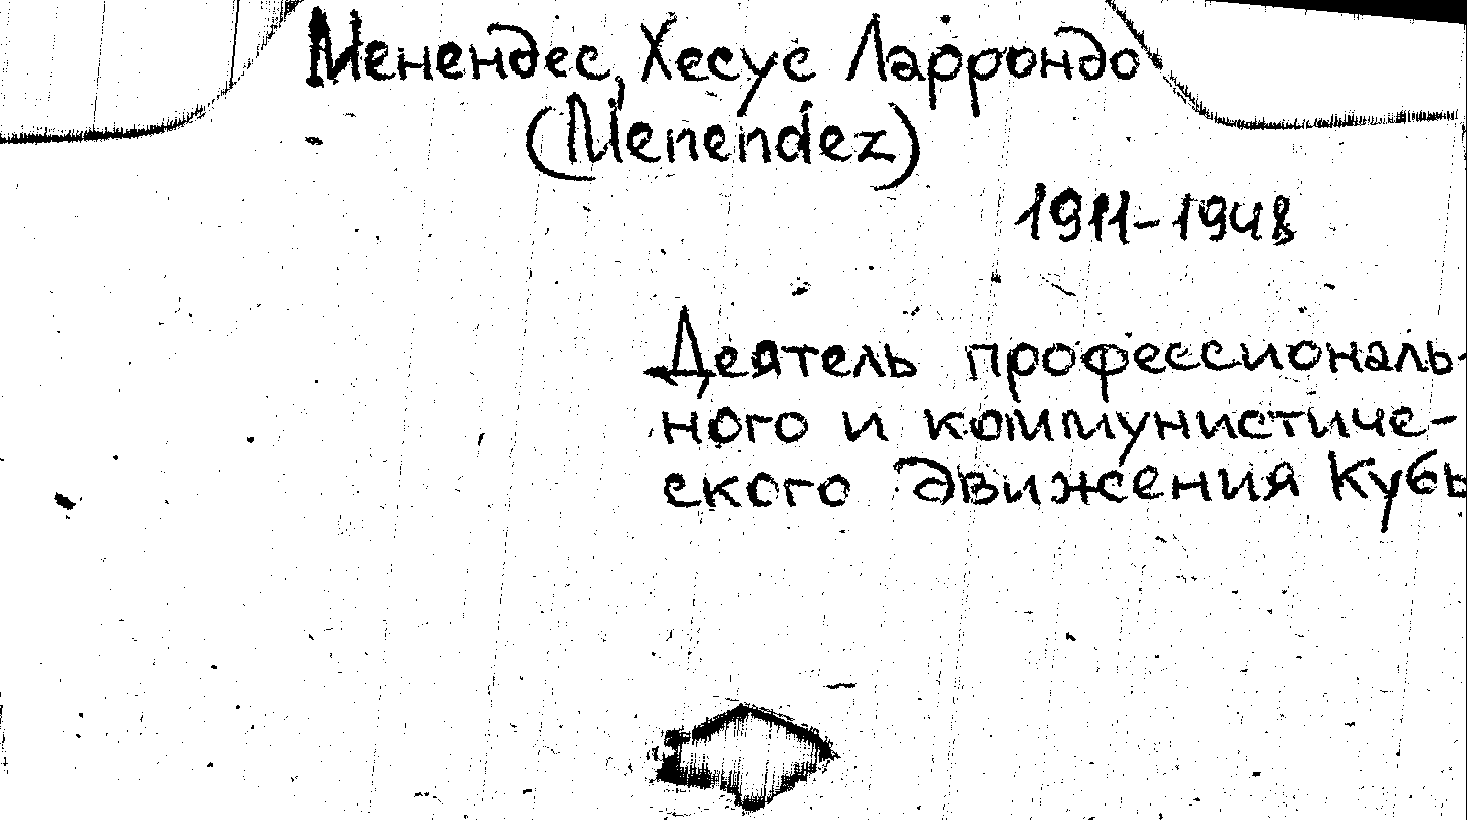 Менендес, Хесус Ларрондо
(Menendez)
1911-1948
Деятель профессиональ-
ного и коммунистиче-
ского движения Кубы